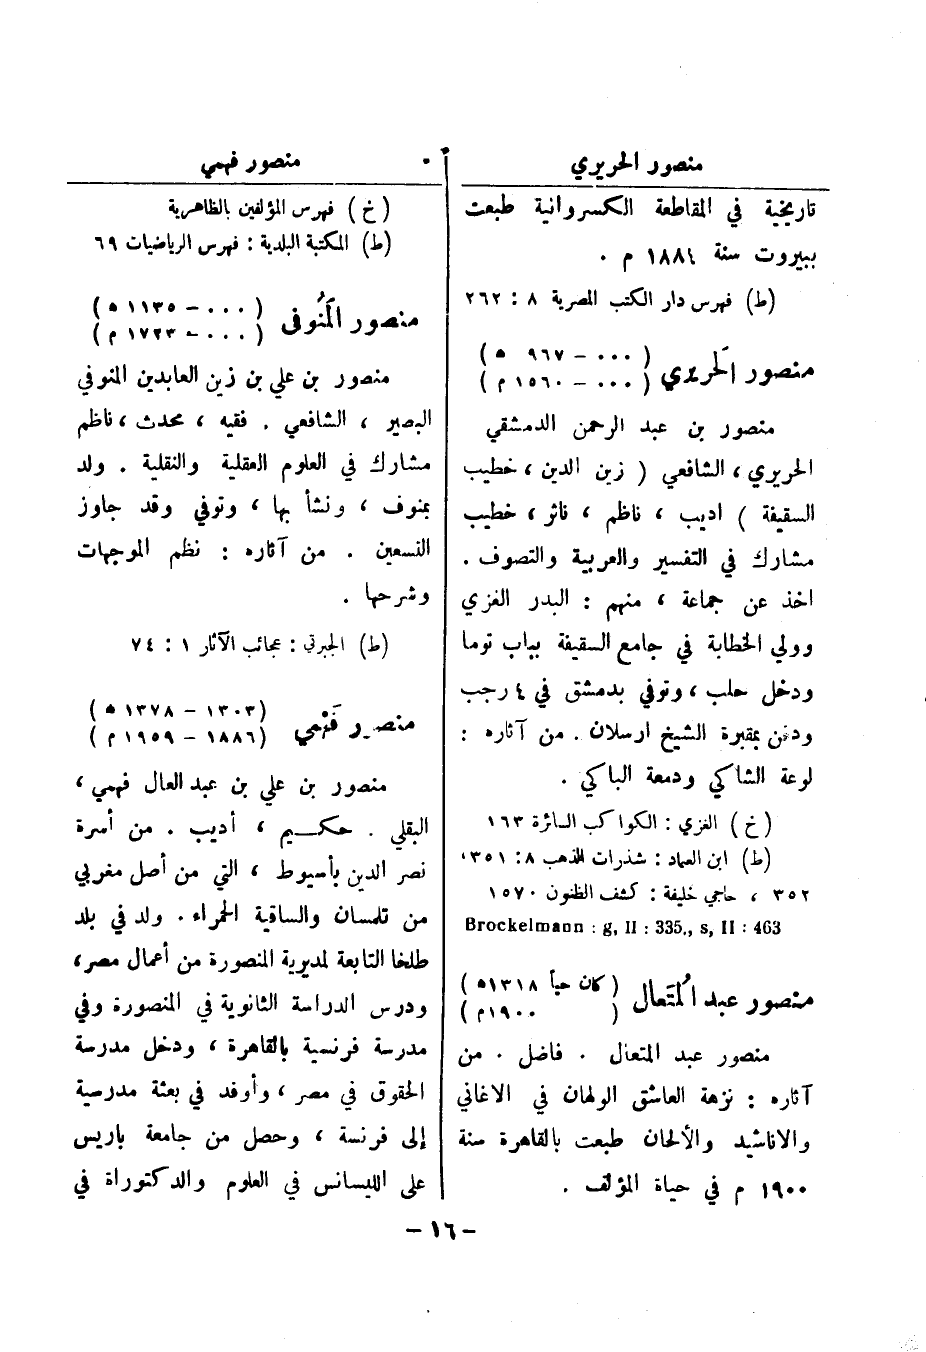 منصور الحريري
تاريخية في المقاطعة الكسروانية طبعت
ببيروت سنة ١٨٨٤ م .
(ط) فهرس دار الكتب المصرية ٨ : ٢٦٢
منصور الحَريري ( ٠٠٠ – ٩٦٧ ه )
( ٠٠٠ – ١٥٦٠ م )
منصور بن عبد الرحمن الدمشقي
الحريري ، الشافعي ( زين الدين ، خطيب
السقيفة ) اديب ، ناظم ، ناثر ، خطيب
مشارك في التفسير والعربية والتصوف .
اخذ عن جماعة ، منهم : البدر الغزي
وولي الخطابة في جامع السقيفة بباب توما
ودخل حلب ، وتوفي بدمشق في ٤ رجب
ودفن بمقبرة الشيخ ارسلان . من آثاره :
لوعة الشاكي ودمعة الباكي .
(خ) الغزي : الكواكب السائرة ١٦٣
(ط) ابن العماد : شذرات الذهب ٨ : ٣٥١،
٣٥٢ ، حاجي خليفة : كشف الظنون ١٥٧٠
Brockelmann : g, II : 335., s, II : 463
منصور عبد المُتَعال ( كان حياً ١٣١٨ ه )
( ١٩٠٠ م )
منصور عبد المتعال . فاضل . من
آثاره : نزهة العاشق الولهان في الاغاني
والاناشيد والألحان طبعت بالقاهرة سنة
١٩٠٠ م في حياة المؤلف .
منصور فهمي
(خ) فهرس المؤلفين بالظاهرية
(ط) المكتبة البلدية : فهرس الرياضيات ٦٩
منصور المَنُوفى ( ٠٠٠ – ١١٣٥ ه )
( ٠٠٠ – ١٧٢٣ م )
منصور بن علي بن زين العابدين المنوفي
البصير ، الشافعي . فقيه ، محدث ، ناظم
مشارك في العلوم العقلية والنقلية . ولد
بمنوف ، ونشأ بها ، وتوفي وقد جاوز
التسعين . من آثاره : نظم الموجهات
وشرحها .
(ط) الجبرتي : عجائب الآثار ١ : ٧٤
منصور فَهْمي (١٣٠٣ – ١٣٧٨ ه )
(١٨٨٦ – ١٩٥٩ م )
منصور بن علي بن عبد العال فهمي ،
البقلي . حكيم ، أديب . من أسرة
نصر الدين بأسيوط ، التي من أصل مغربي
من تلمسان والساقية الحمراء . ولد في بلد
طلخا التابعة لمديرية المنصورة من أعمال مصر ،
ودرس الدراسة الثانوية في المنصورة وفي
مدرسة فرنسية بالقاهرة ، ودخل مدرسة
الحقوق في مصر ، وأوفد في بعثة مدرسية
إلى فرنسة ، وحصل من جامعة باريس
على الليسانس في العلوم والدكتوراة في
– ١٦ –